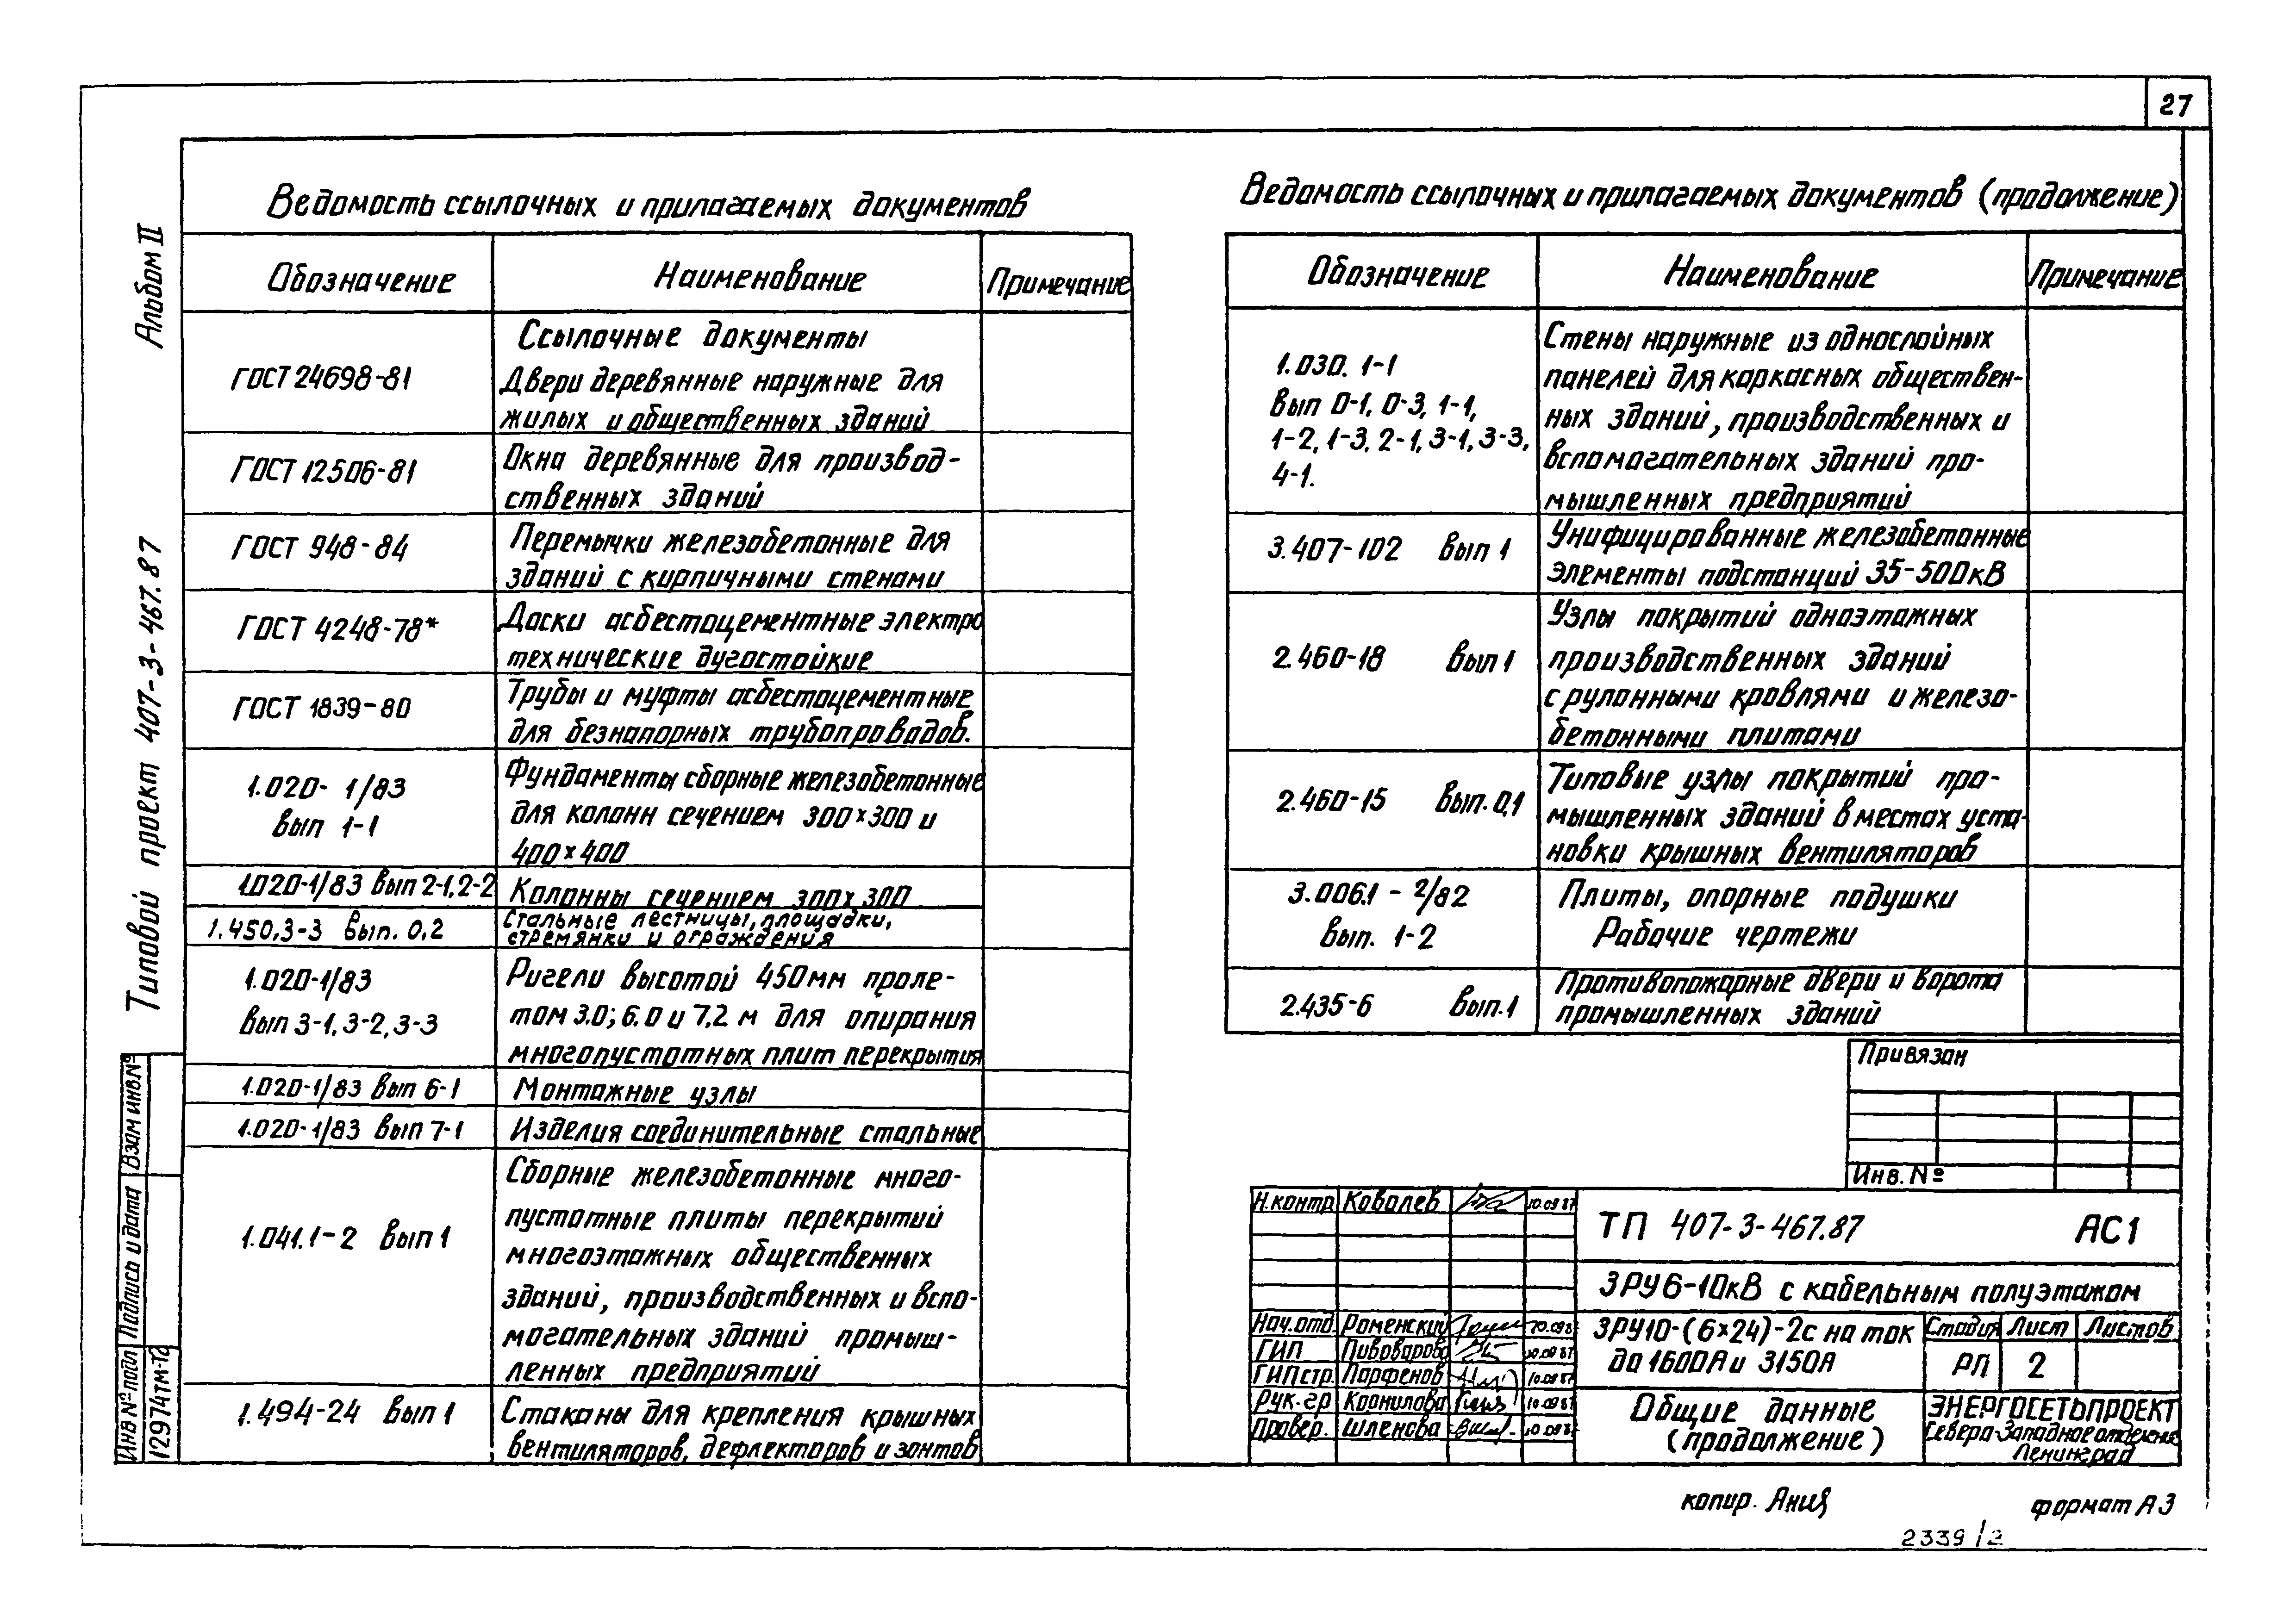 27
Альбом II
Типовой проект 407-3-467.87
Ведомость ссылочных и прилагаемых документов
Обозначение
Наименование
Примечание
Ссылочные документы
ГОСТ 24698-81
Двери деревянные наружные для
жилых и общественных зданий
ГОСТ 12506-81
Окна деревянные для производ-
ственных зданий
ГОСТ 948-84
Перемычки железобетонные для
зданий с кирпичными стенами
ГОСТ 4248-78*
Доски асбестоцементные электро
технические дугостойкие
ГОСТ 1839-80
Трубы и муфты асбестоцементные
для безнапорных трубопроводов.
1.020-1/83
вып 1-1
Фундаменты сборные железобетонные
для колонн сечением 300×300 и
400×400
1.020-1/83 вып 2-1, 2-2
Колонны сечением 300×300
1.450.3-3 Вып. 0,2
Стальные лестницы, площадки,
стремянки и ограждения
1.020-1/83
вып 3-1, 3-2, 3-3
Ригели высотой 450мм проле-
том 3.0; 6.0 и 7,2 м для опирания
многопустотных плит перекрытия
1.020-1/83 вып 6-1
Монтажные узлы
1.020-1/83 вып 7-1
Изделия соединительные стальные
1.041.1-2 вып 1
Сборные железобетонные много-
пустотные плиты перекрытий
многоэтажных общественных
зданий, производственных и вспо-
могательных зданий промыш-
ленных предприятий
1.494-24 вып 1
Стаканы для крепления крышных
вентиляторов, дефлекторов и зонтов
Ведомость ссылочных и прилагаемых документов (продолжение)
Обозначение
Наименование
Примечание
1.030.1-1
вып 0-1, 0-3, 1-1,
1-2, 1-3, 2-1, 3-1, 3-3,
4-1.
Стены наружные из однослойных
панелей для каркасных обществен-
ных зданий, производственных и
вспомогательных зданий про-
мышленных предприятий
3.407-102 вып 1
Унифицированные железобетонные
элементы подстанций 35-500кВ
2.460-18 вып 1
Узлы покрытий одноэтажных
производственных зданий
с рулонными кровлями и железо-
бетонными плитами
2.460-15 Вып. 0,1
Типовые узлы покрытий про-
мышленных зданий в местах уста-
новки крышных вентиляторов
3.006.1-2/82
вып. 1-2
Плиты, опорные подушки
Рабочие чертежи
2.435-6 Вып. 1
Противопожарные двери и ворота
промышленных зданий
Привязан
Инв. №
Н.контр Ковалев 10.09 87
Нач.отд Роменский
ГИП Пивоварова 10.09 87
ГИП стр. Парфенов 10.09 87
Рук.гр Корнилова 10.09 87
Провер. Шленова
ТП 407-3-467.87 АС1
ЗРУ 6-10кВ с кабельным полуэтажом
ЗРУ10-(6×24)-2с на ток
до 1600А и 3150А
Стадия Лист Листов
РП 2
Общие данные
(продолжение)
ЭНЕРГОСЕТЬПРОЕКТ
Северо-Западное отделение
Ленинград
Взам инв.№
Подпись и дата
Инв № подл
12974тм-
копир. Аниз
формат А3
2339/2